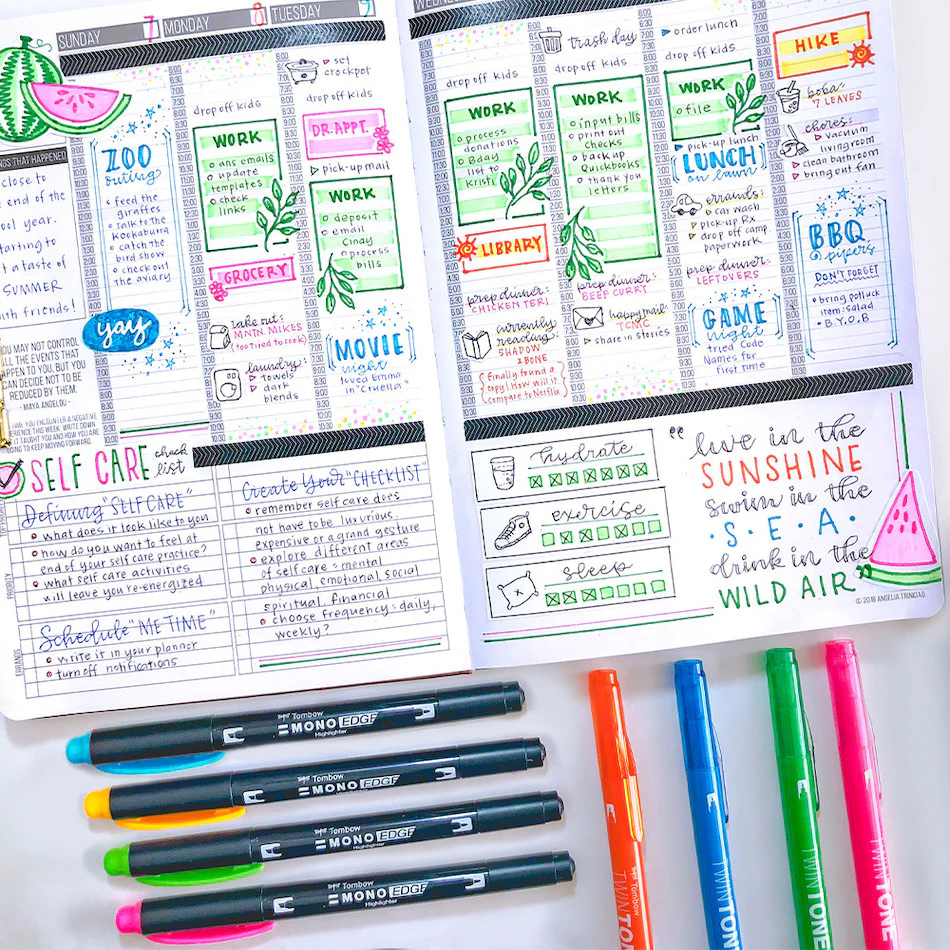 SUNDAY 7
MONDAY 8
TUESDAY 9
ZOO
outing
feed the
giraffes
talk to the
Kookaburra
catch the
bird show
check out
the aviary
yay
drop off kids
WORK
ans emails
update
templates
check
links
GROCERY
take out:
MNTN MIKES
(too tired to cook)
laundry:
towels
dark
blends
set
crockpot
drop off kids
DR. APPT.
pick-up mail
WORK
deposit
email
Cinay
process
bills
MOVIE
night
loved Emma
in "Cruella"
NGS THAT HAPPENED
close to
end of the
ool year.
tarting to
t a taste of
SUMMER
with friends!
YOU MAY NOT CONTROL
ALL THE EVENTS THAT
HAPPEN TO YOU, BUT YOU
CAN DECIDE NOT TO BE
REDUCED BY THEM.
- MAYA ANGELOU -
drop off kids
WORK
process
donations
Bday
list to
Kristi
LIBRARY
prep dinner:
CHICKEN TERI
currently
reading:
SHADOW
& BONE
(Finally found a
copy! How will it
compare to Netflix)
trash day
drop off kids
WORK
input bills
print out
checks
backup
Quickbooks
thank you
letters
prep dinner:
BEEF CURRY
happy mail:
TCMC
share in stories
order lunch
drop off kids
WORK
file
pick-up lunch
LUNCH
on lawn
errands:
car wash
pick-up RX
drop off camp
paperwork
prep dinner:
LEFTOVERS
GAME
night
tried Code
Names for
first time
HIKE
boba:
7 LEAVES
chores:
vacuum
living room
clean bathroom
bring out fan
BBQ
DON'T FORGET
bring potluck
item: salad
B.Y.O.B
SELF CARE check
list
Defining "SELF CARE"
what does it look like to you
how do you want to feel at
end of your self care practice?
what self care activities
will leave you re-energized
Schedule "ME TIME"
write it in your planner
turn off notifications
Create Your "CHECKLIST"
remember self care does
not have to be luxurious,
expensive or a grand gesture
explore different areas
of self care: mental
physical, emotional, social
spiritual, financial
choose frequency: daily,
weekly?
PRIORITY
ERRANDS
hydrate
exercise
sleep
"live in the
SUNSHINE
swim in the
·S·E·A·
drink in the
WILD AIR"
© 2018 ANGELIA TRINIDAD
Tombow
MONO EDGE
Highlighter
Tombow
MONO EDGE
Tombow
MONO EDGE
Highlighter
Tombow
MONO EDGE
Highlighter
Tombow TWINTONE
Tombow TWINTONE
Tombow TWINTONE
Tombow TWINTONE